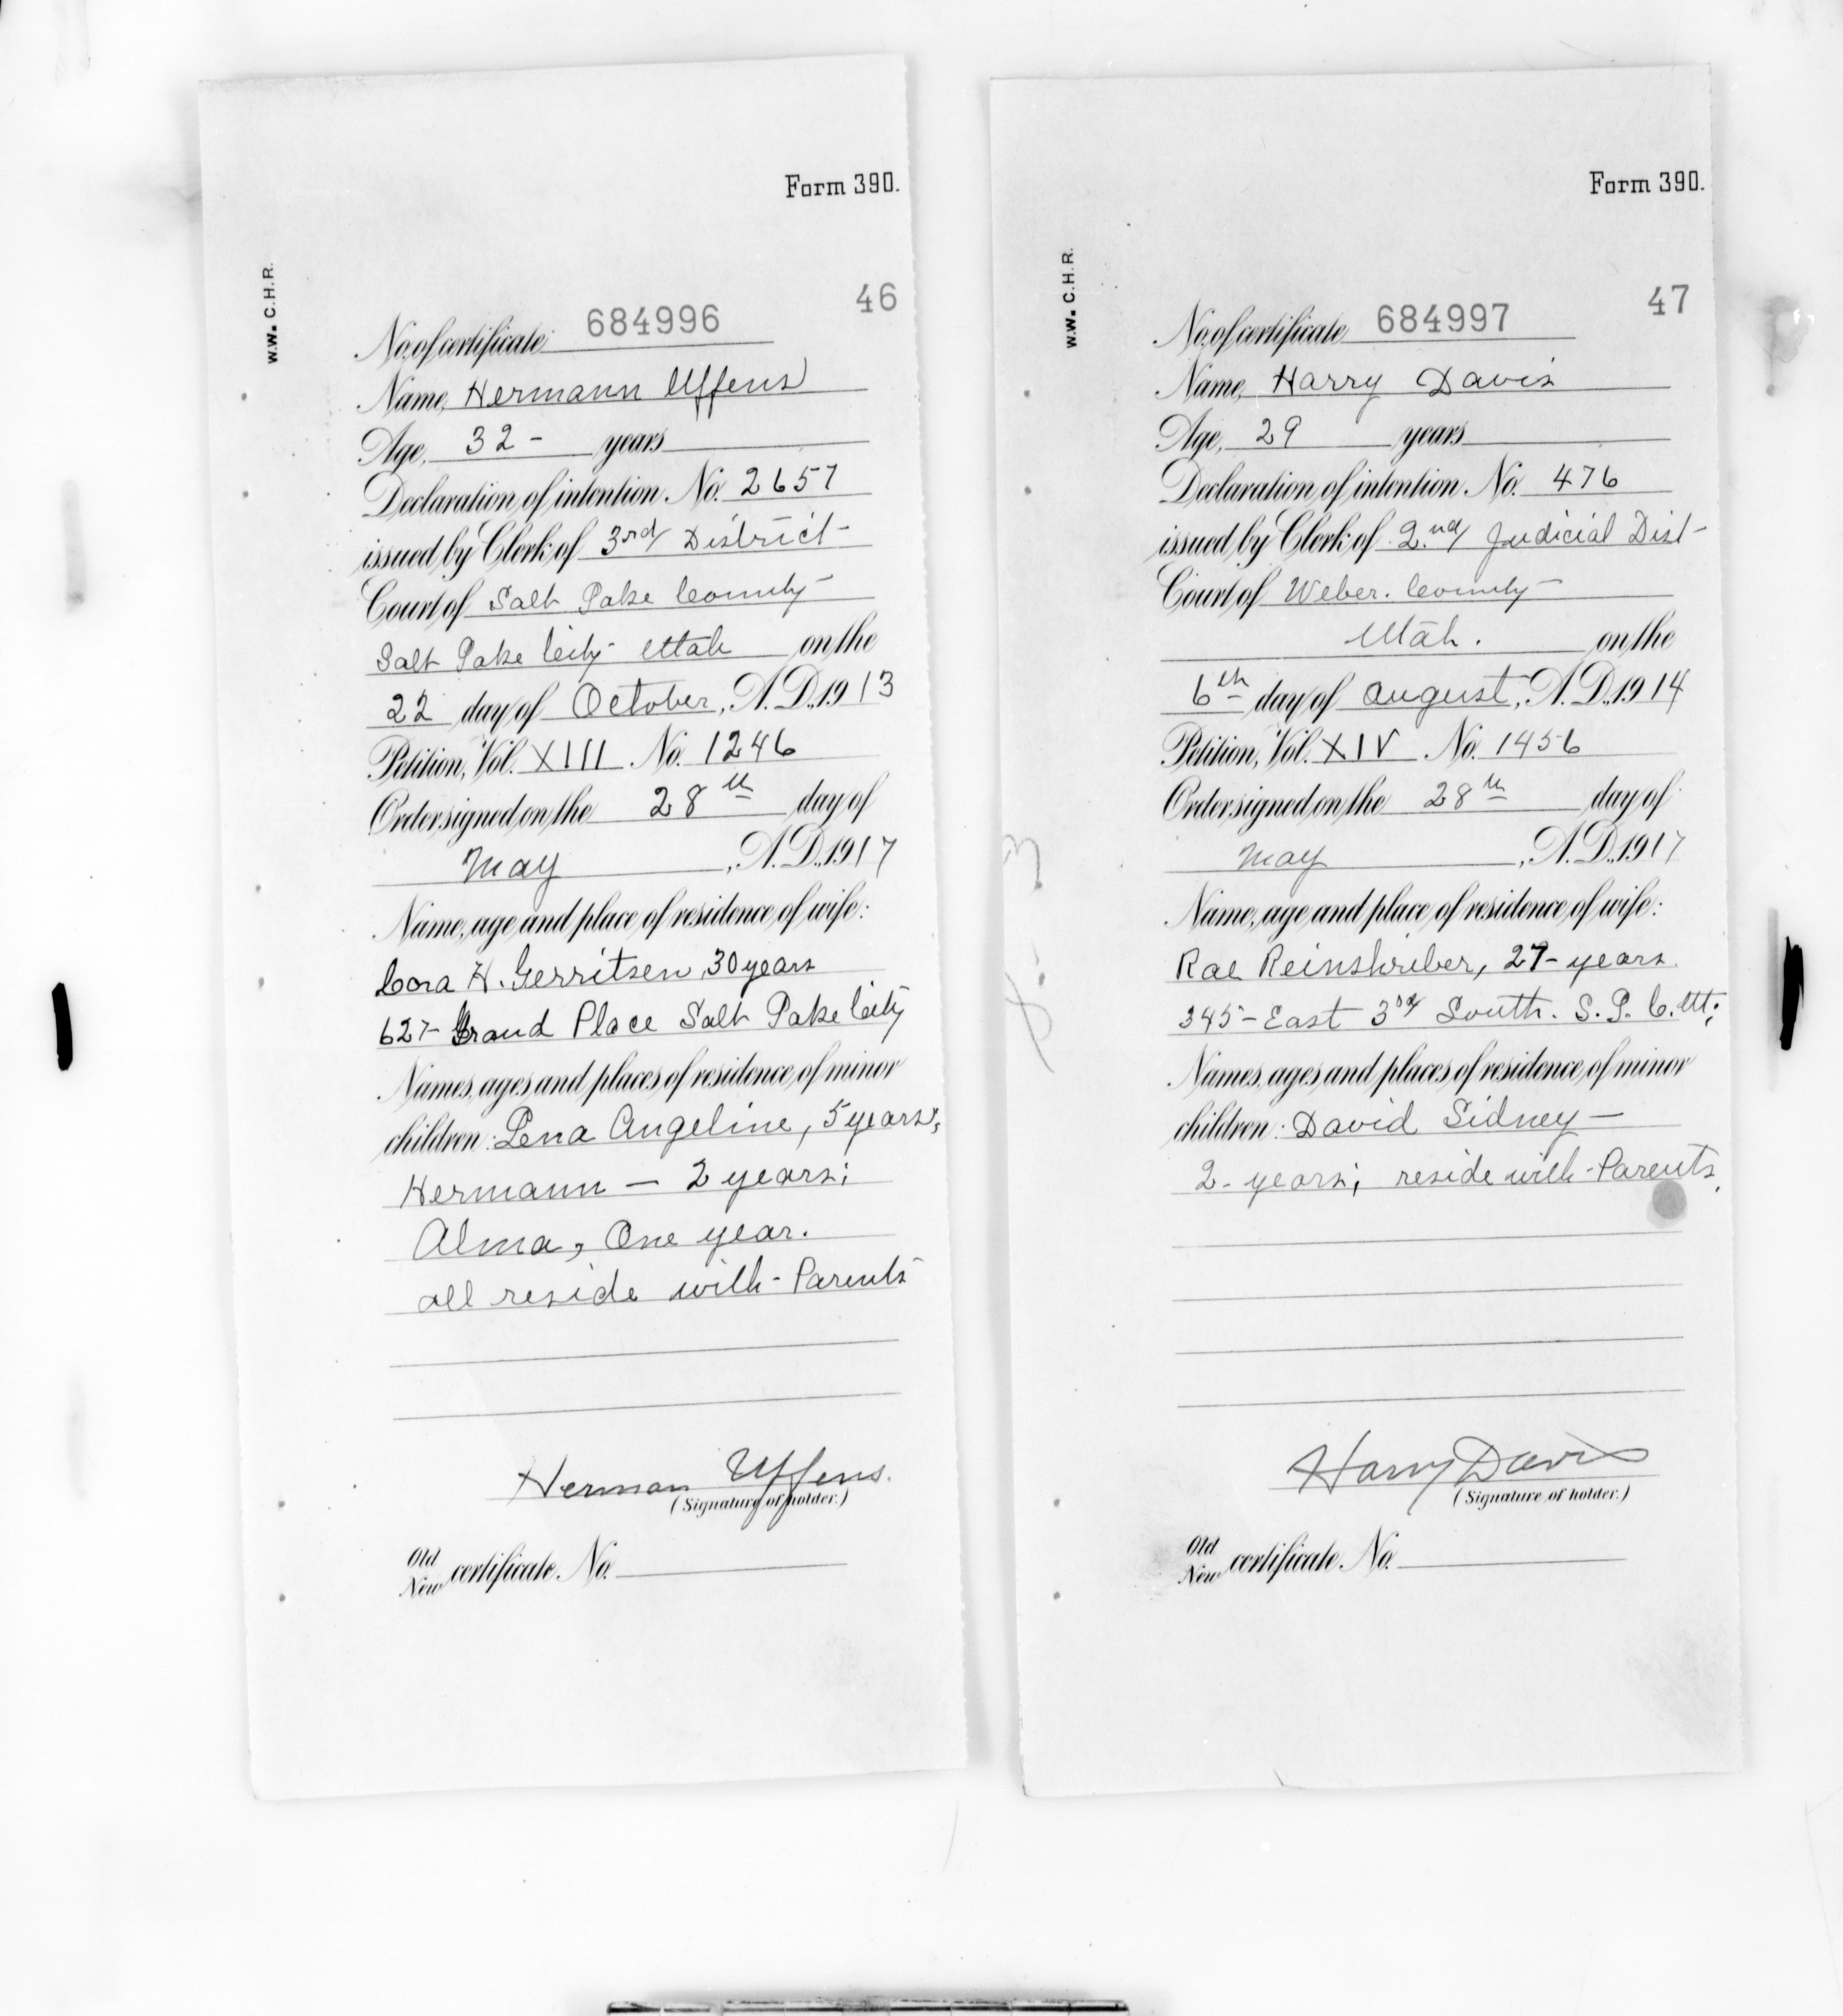 Form 390.
W.W. C.H.R.
46
No. of certificate 684996
Name, Hermann Uffens
Age, 32 - years
Declaration of intention No. 2657
issued by Clerk of 3rd District -
Court of Salt Lake County -
Salt Lake City - Utah on the
22 day of October, A.D. 1913
Petition, Vol. XIII No. 1246
Order signed on the 28th day of
May, A.D. 1917
Name, age and place of residence of wife:
Cora H. Gerritsen, 30 years
627 - Grand Place Salt Lake City
Names, ages and places of residence of minor
children: Lena Angeline, 5 years;
Hermann — 2 years;
Alma, One year.
all reside with - Parents
Herman Uffens.
(Signature of holder.)
Old
New certificate No.
Form 390.
W.W. C.H.R.
47
No. of certificate 684997
Name, Harry Davis
Age, 29 years
Declaration of intention No. 476
issued by Clerk of 2nd Judicial Dist -
Court of Weber. County -
Utah. on the
6th day of August, A.D. 1914
Petition, Vol. XIV No. 1456
Order signed on the 28th day of
May, A.D. 1917
Name, age and place of residence of wife:
Rae Reinshriber, 27 - years.
345 - East 3rd South. S. L. C. Ut;
Names, ages and places of residence of minor
children: David Sidney —
2 - years; reside with - Parents.
Harry Davis
(Signature of holder.)
Old
New certificate No.